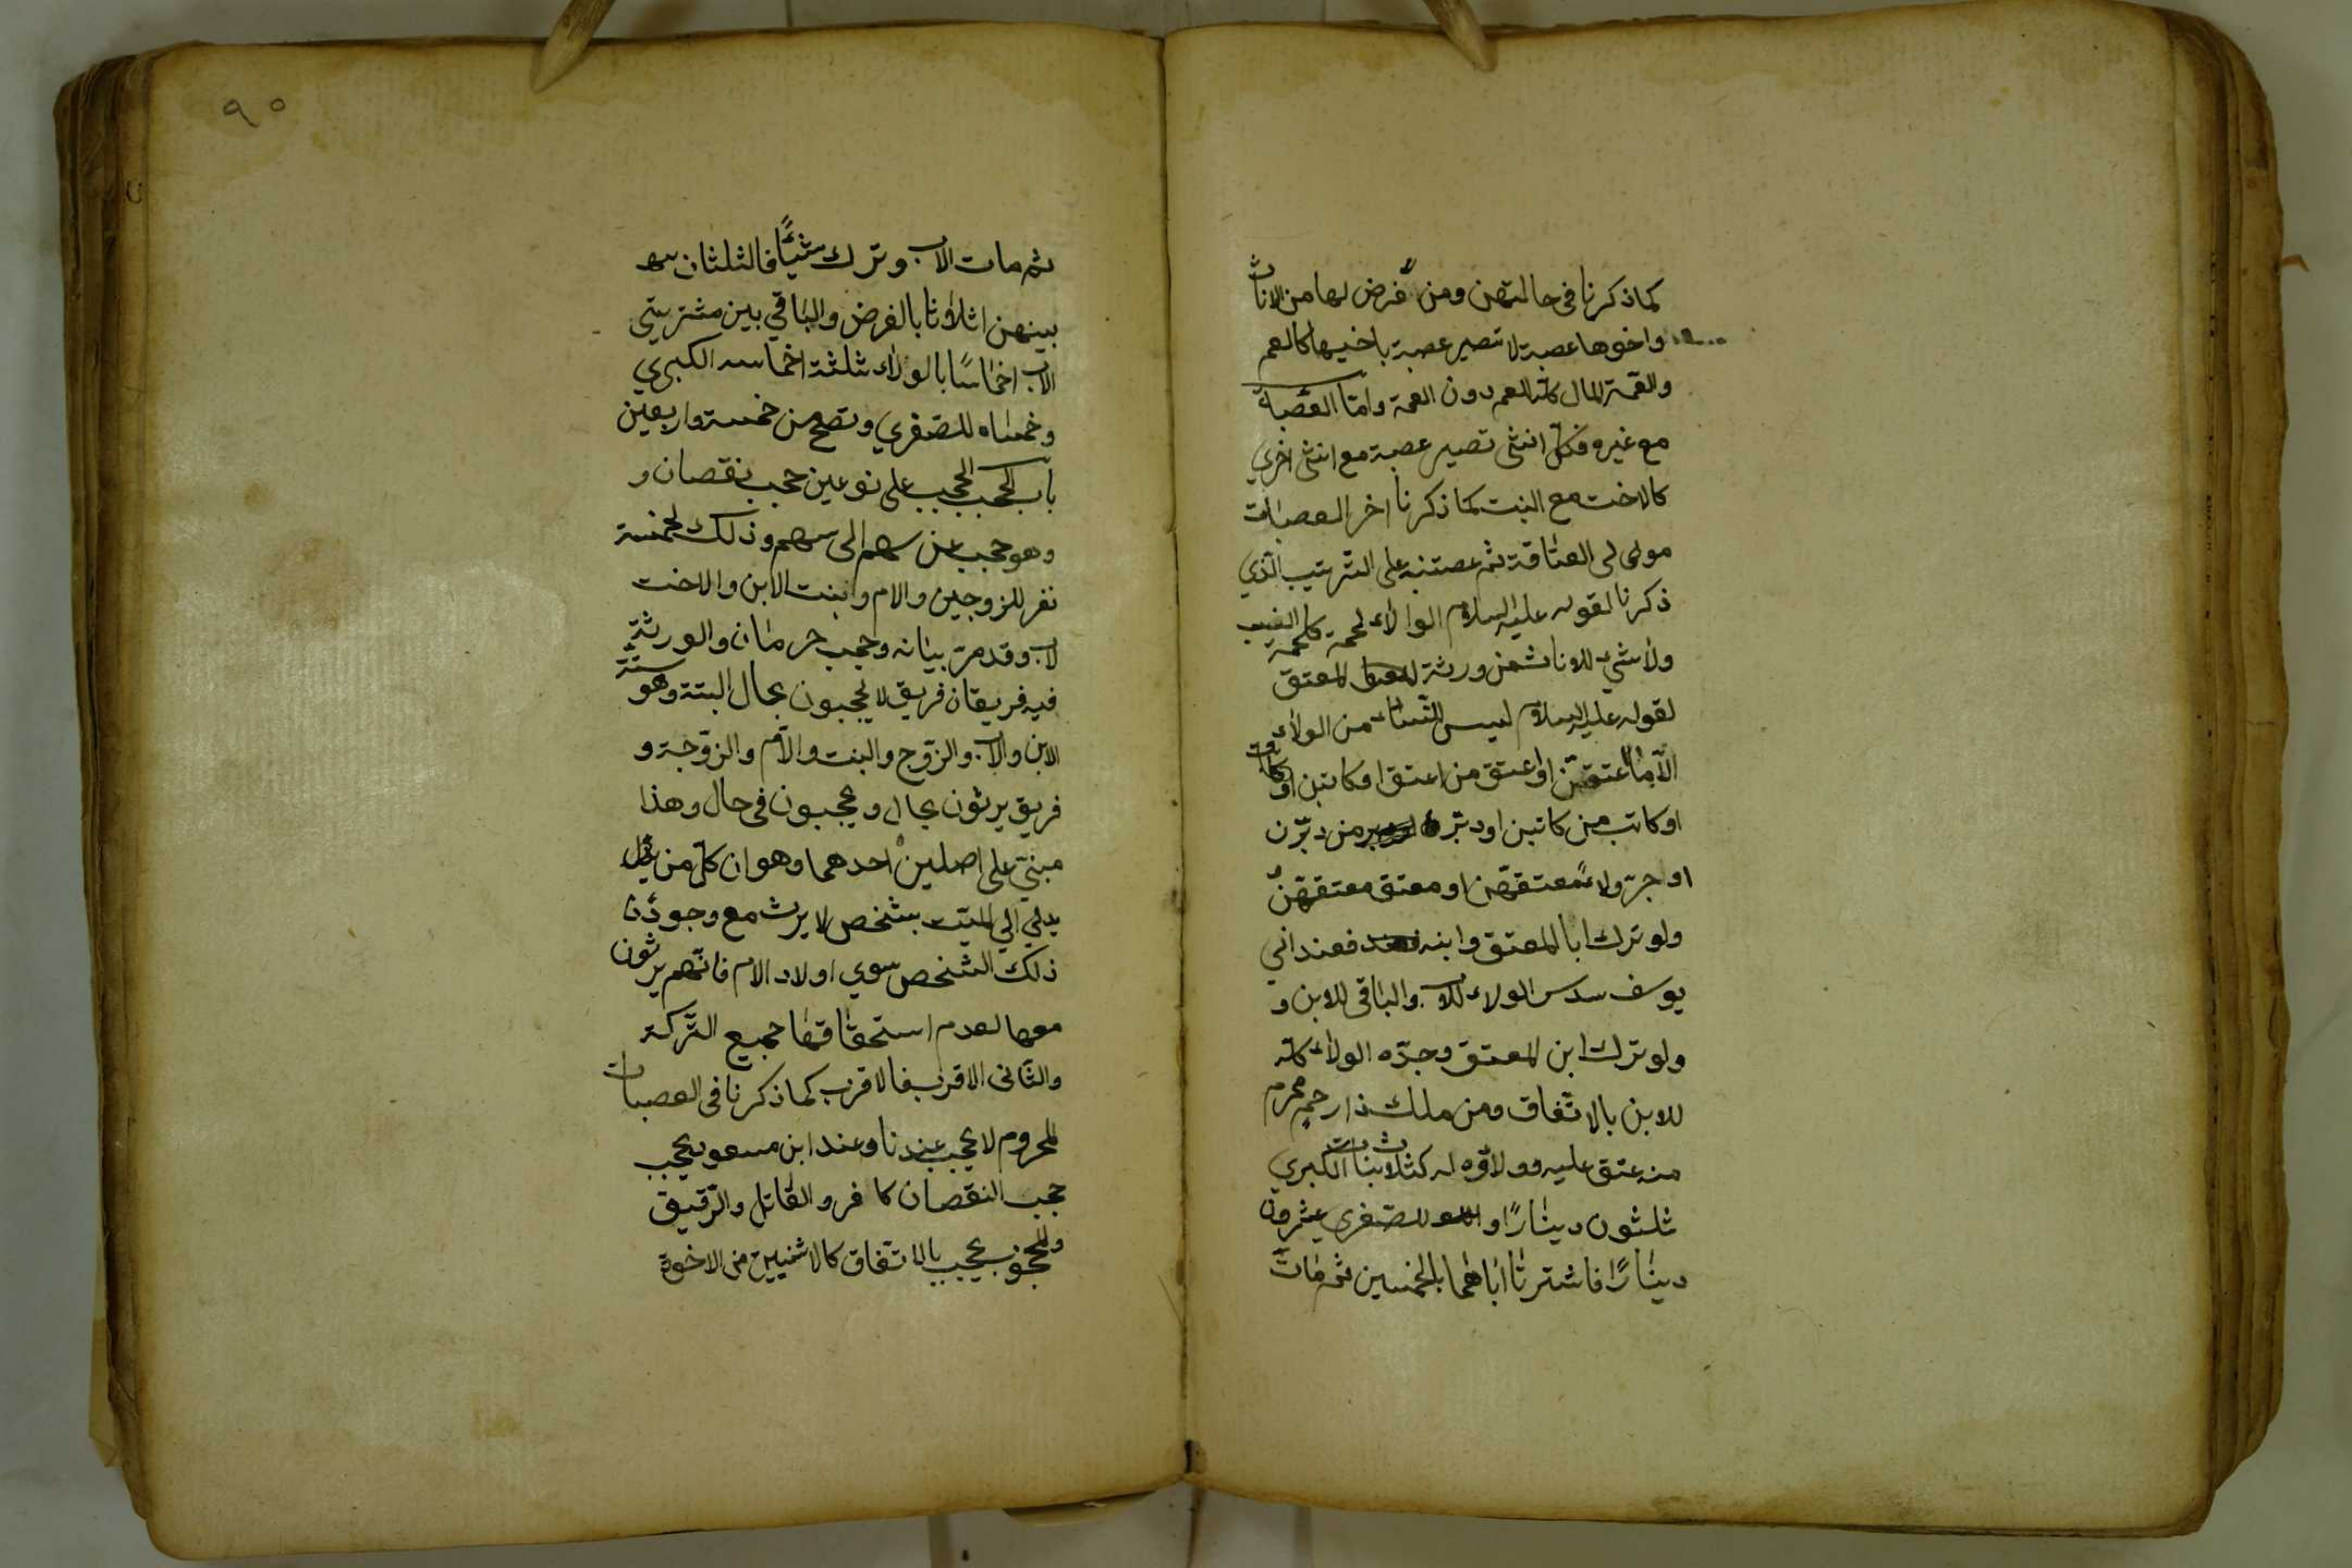 كما ذكرنا في حالتهن ومن لا فرض لها من الاناث
واخوها عصبة لا تصير عصبة باخيها كالعم
والعمة المال كله للعم دون العمة واما العصبة
مع غيره فكل انثى تصير عصبة مع انثى اخري
كالاخت مع البنت كما ذكرنا اخر العصبات
مولى العتاقة ثم عصبته على الترتيب الذي
ذكرنا لقوله عليه السلام الولاء لحمة كلحمة النسب
ولا شيء للاناث من ورثة المعتق
لقوله عليه السلام ليس للنساء من الولاء
الا ما اعتقن او اعتق من اعتقن او كاتبن
او كاتب من كاتبن او دبرن من دبرن
او جر ولاءً معتقهن او معتق معتقهن
ولو ترك ابا المعتق وابنه فعند ابي
يوسف سدس الولاء للاب والباقي للابن و
ولو ترك ابن المعتق وجده الولاء كله
للابن بالاتفاق ومن ملك ذا رحم محرم
منه عتق عليه وولاؤه له كثلاث بنات الكبري
ثلثون دينارًا وللصغرى عشرون
دينارًا فاشترتا اباهما بالخمسين ثم مات
٩٠
ثم مات الاب وترك شيئًا فالثلثان
بينهن اثلاثا بالفرض والباقي بين مشتريتي
الاب اخماسًا بالولاء ثلثة اخماسه الكبري
وخمساه للصغري وتصح من خمسة واربعين
باب الحجب الحجب على نوعين حجب نقصان و
وهو حجب عن سهم الى سهم وذلك لخمسة
نفر للزوجين والام وبنت الابن والاخت
لاب وقد مر بيانه وحجب حرمان والورثة
فيه فريقان فريق لا يحجبون بحال البتة وهو ستة
الابن والاب والزوج والبنت والام والزوجة و
فريق يرثون بحال ويحجبون في حال وهذا
مبني على اصلين احدهما وهو ان كل من
يدلي الي الميت بشخص لا يرث مع وجود
ذلك الشخص سوي اولاد الام فانهم يرثون
معها لعدم استحقاقها جميع التركة
والثاني الاقرب فالاقرب كما ذكرنا في العصبات
المحروم لا يحجب عندنا وعند ابن مسعود يحجب
حجب النقصان كافر والقاتل والرقيق
والمحجوب يحجب بالاتفاق كالاثنين من الاخوة